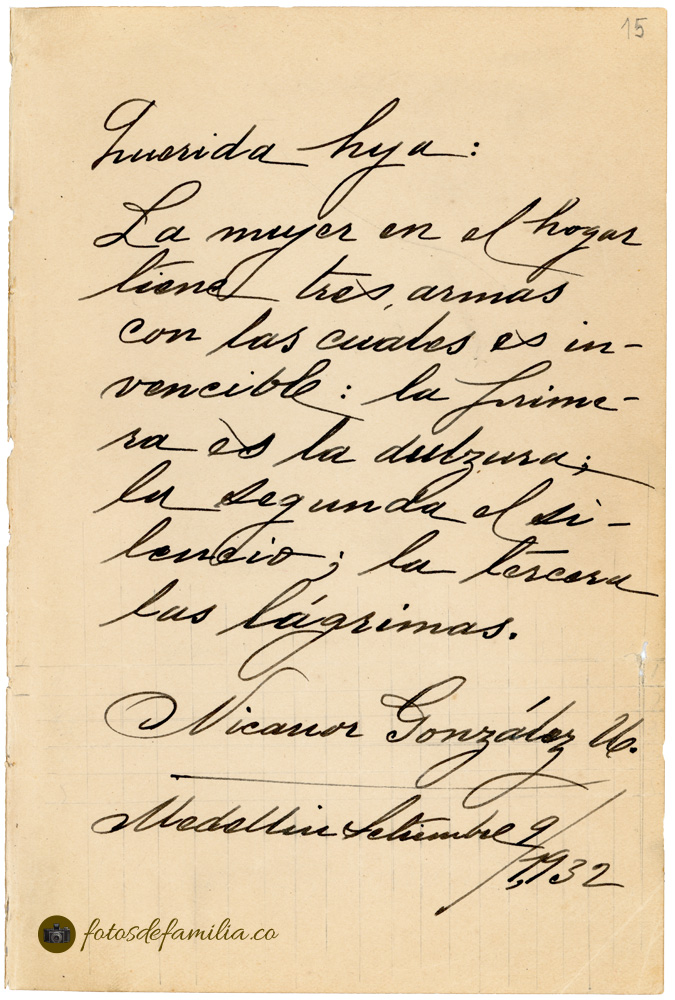 15
Querida hija:
La mujer en el hogar
tiene tres armas
con las cuales es in-
vencible: la prime-
ra es la dulzura;
la segunda el si-
lencio; la tercera
las lágrimas.
Nicanor González U.
Medellin Setiembre 9/
1932
fotosdefamilia.co